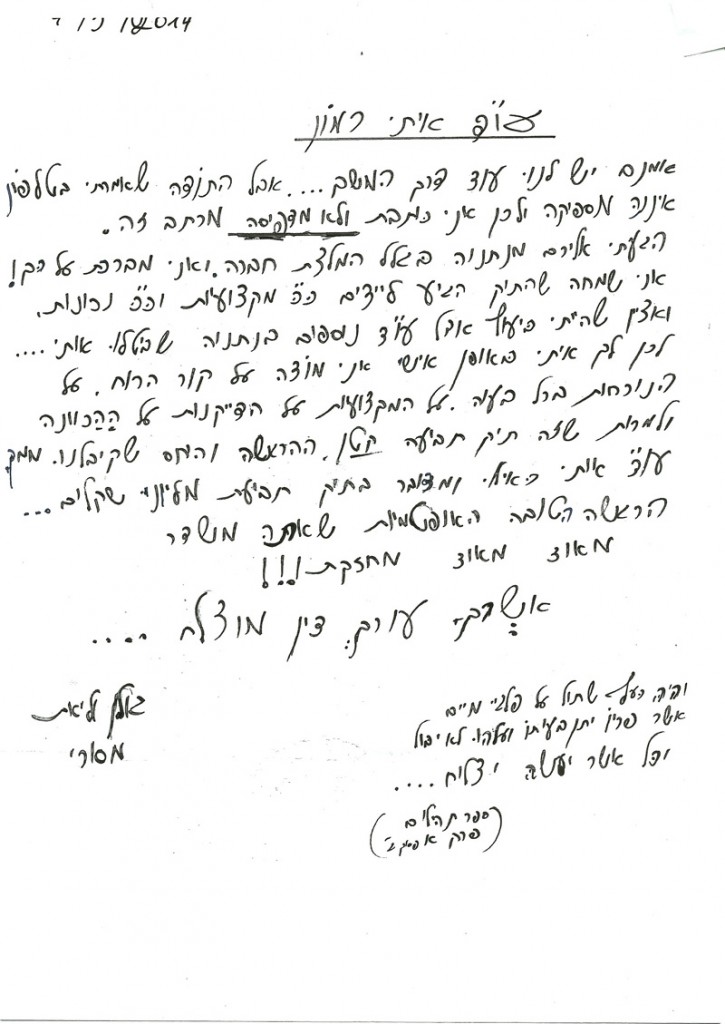 עו"ד איתי רמון
אומנם יש לנו עוד דרך המשך .... אבל התודה שאמרתי בטלפון
איננה מספיקה ולכן אני כותבת ולא מדפיסה מכתב זה.
הגעתי אליכם מנתניה בגלל המלצת חברה. ואני מברכת על כך!
אני שמחה שהתיק הגיע לידיים כ"כ מקצועיות וכ"כ נכונות.
ואציין שהייתי בייעוץ אצל עו"ד נוספים בנתניה שבטלו אותי ....
לכן לך איתי באופן אישי אני מודה על קור הרוח, על
הנינוחות בכל בעיה. על המקצועיות על הדייקנות על ההכוונה
ולמרות שזה תיק תביעה קטן, ההרגשה והיחס שקיבלנו ממך
עו"ד איתי כאילו ומדובר בתיק תביעת מליוני שקלים ...
הרגשה הטובה האופטמיות שאתה משדר
מאוד מאוד מחזקת!!!
עורך דין מוצלח ....
והיה כעץ שתול על פלגי מיים
אשר פריו יתן בעיתו ועלהו לא יבול
וכל אשר יעשה יצליח ....
(ספר תהלים
פרק א פסוק ג')
מסורי